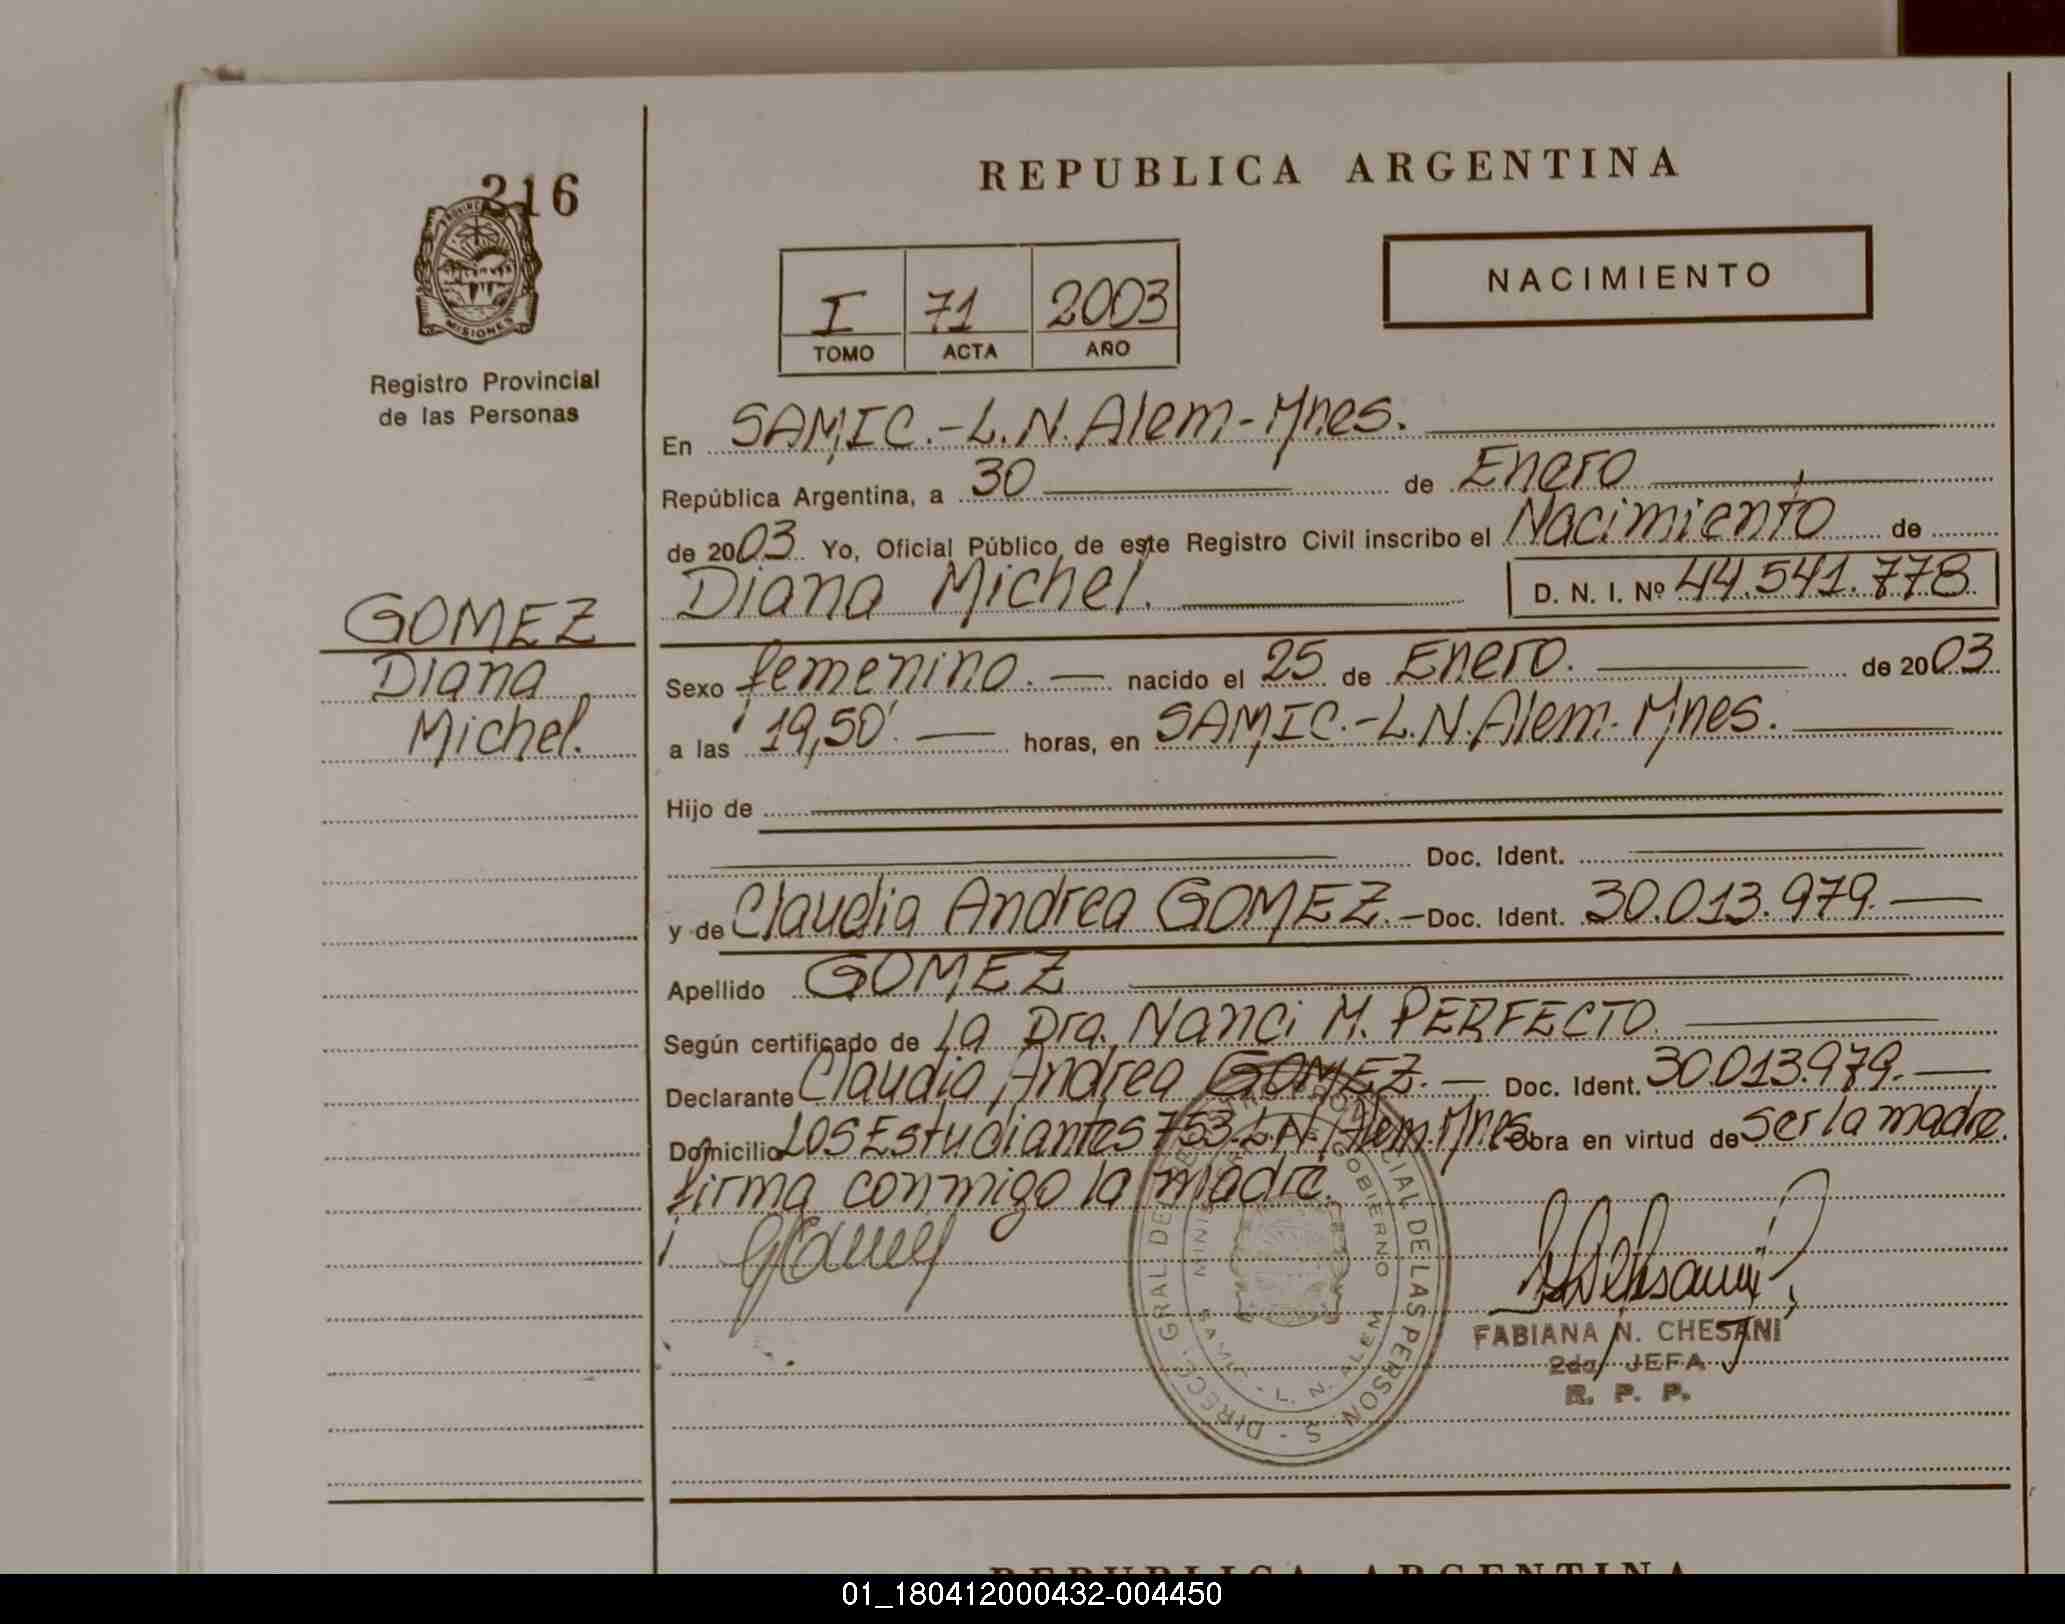 216
PROVINCIA
MISIONES
Registro Provincial
de las Personas
GOMEZ
Diana
Michel.
REPUBLICA ARGENTINA
I 71 2003
TOMO ACTA AÑO
NACIMIENTO
En SAMIC.-L.N.Alem-Mnes.
República Argentina, a 30 de Enero
de 2003 Yo, Oficial Público de este Registro Civil inscribo el Nacimiento de
Diana Michel. D. N. I. Nº 44.541.778
Sexo femenino.— nacido el 25 de Enero. de 2003
a las 19,50'.— horas, en SAMIC.-L.N.Alem-Mnes.
Hijo de
Doc. Ident.
y de Claudia Andrea GOMEZ.- Doc. Ident. 30.013.979.—
Apellido GOMEZ
Según certificado de la Dra. Nanci M. PERFECTO.
Declarante Claudia Andrea GOMEZ.— Doc. Ident. 30.013.979.—
Domicilio Los Estudiantes 753.L.N.Alem.Mnes. Obra en virtud de ser la madre.
firma conmigo la madre.
FABIANA N. CHESANI
2da. JEFA
R. P. P.
GOBIERNO
SAMIC - L. N. ALEM
REPUBLICA ARGENTINA
01_180412000432-004450